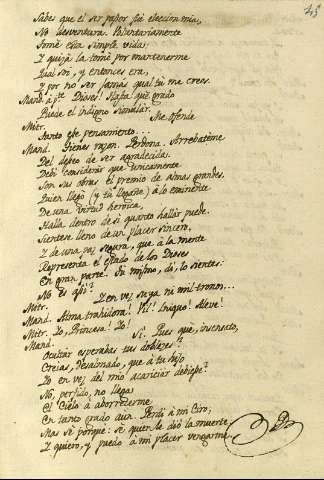 43
Sabes que el ser pastor fué eleccion mia,
No desventura. Voluntariamente
Tomé esta simple vida;
Y quizá la tomé por mantenerme
Qual soy, y entonces era,
Y por no ser jamas qual tú me crees.
Mand. á pte. Dioses! Hasta qué grado
Puede el indigno simular.
Mitr. Me ofende
Tanto ese pensamiento...
Mand. Tienes razon. Perdona. Arrebatéme
Del deseo de ser agradecida.
Debí considerar que unicamente
Son sus obras el premio de almas grandes.
Quien llegó (y tú llegaste) á lo eminente
De una virtud heróica,
Halla dentro de sí quanto hallar puede.
Sientese lleno de un placer sincero,
Y de una paz segura, que á la mente
Representa el estado de los Dioses
En gran parte. Tú mismo, dí, lo sientes.
No es así?
Mitr. Y en vez suya ni mil tronos...
Mand. Alma trahidora! Vil! Iniquo! Aleve!
Mitr. Yo, Princesa! Yo!
Mand. Sí. Pues qué, insensato,
Ocultar esperabas tus dobleces?
Creias, desalmado, que á tu hijo
Yo en vez del mio acariciar debiese?
No, perfido, no llega
El Cielo á aborrecerme
En tanto grado aun. Perdí á mi Ciro;
Mas sé porqué: sé quien le dió la muerte,
Y quiero, y puedo á mi placer vengarme.